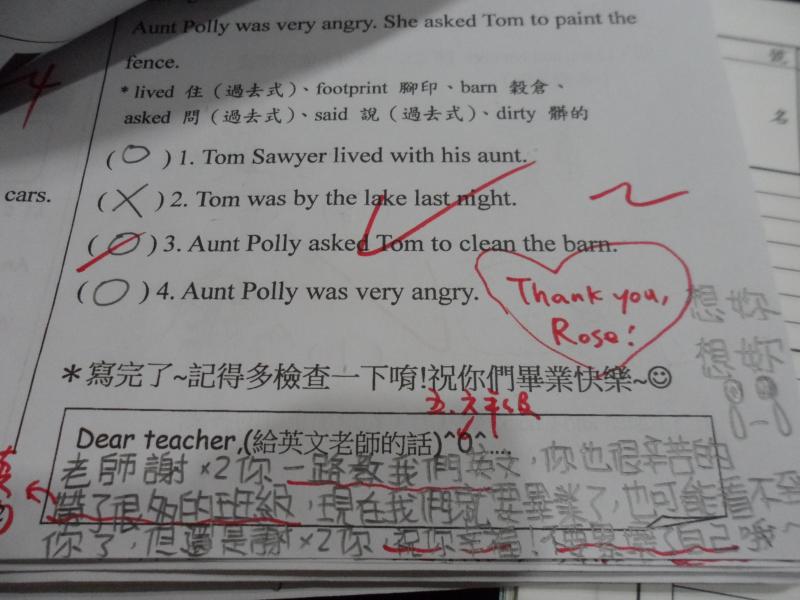 Aunt Polly was very angry. She asked Tom to paint the
fence.
* lived 住(過去式)、footprint 腳印、barn 穀倉、
asked 問(過去式)、said 說(過去式)、dirty 髒的
4
cars.
(O) 1. Tom Sawyer lived with his aunt.
(X) 2. Tom was by the lake last night.
(O) 3. Aunt Polly asked Tom to clean the barn.
(O) 4. Aunt Polly was very angry.
Thank you,
Rose!
想妳
想妳
*寫完了~記得多檢查一下唷!祝你們畢業快樂~☺
Dear teacher,(給英文老師的話)^O^....
老師謝×2你一路教我們英文,你也很辛苦的
勞了很多的班級,現在我們就要畢業了,也可能看不到
你了,但還是謝×2你,祝你幸福!不要累壞了自己哦^
號
名